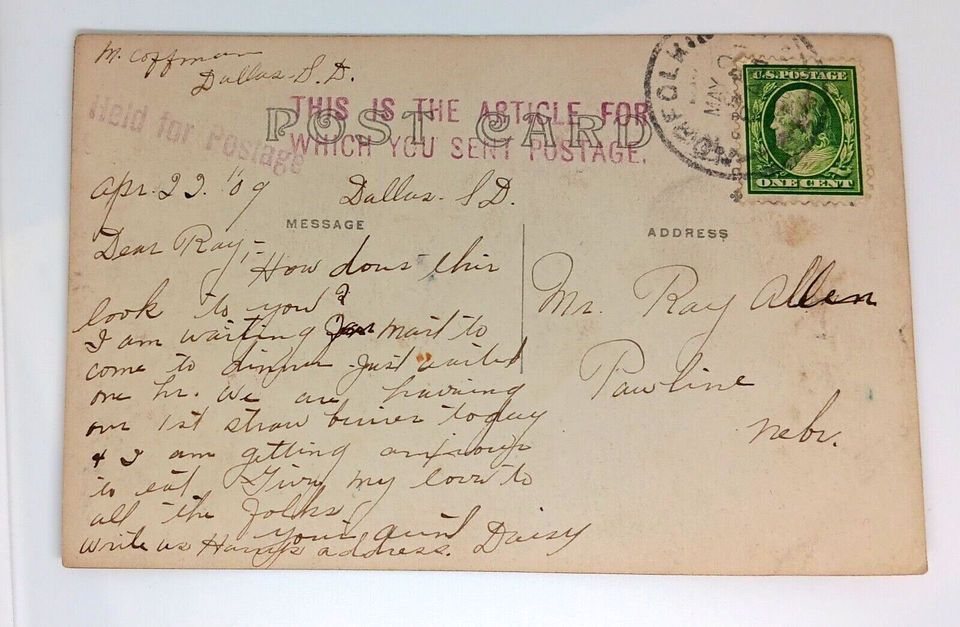 M. Coffman
Dallas S.D.
Held for Postage
THIS IS THE ARTICLE FOR
WHICH YOU SENT POSTAGE.
POST CARD
U.S. POSTAGE
ONE CENT
MAY
Apr. 22. '09 Dallas. S.D.
MESSAGE
ADDRESS
Dear Ray,-
How dous this
look to you?
I am waiting for mart to
come to dinner just waited
one hr. We are haveing
our 1st straw today
& I am getting anxious
to eat Give my love to
all the folks
your aunt Daisy
write us Harry's address.
Mr. Ray Allen
Pawline
Nebr.